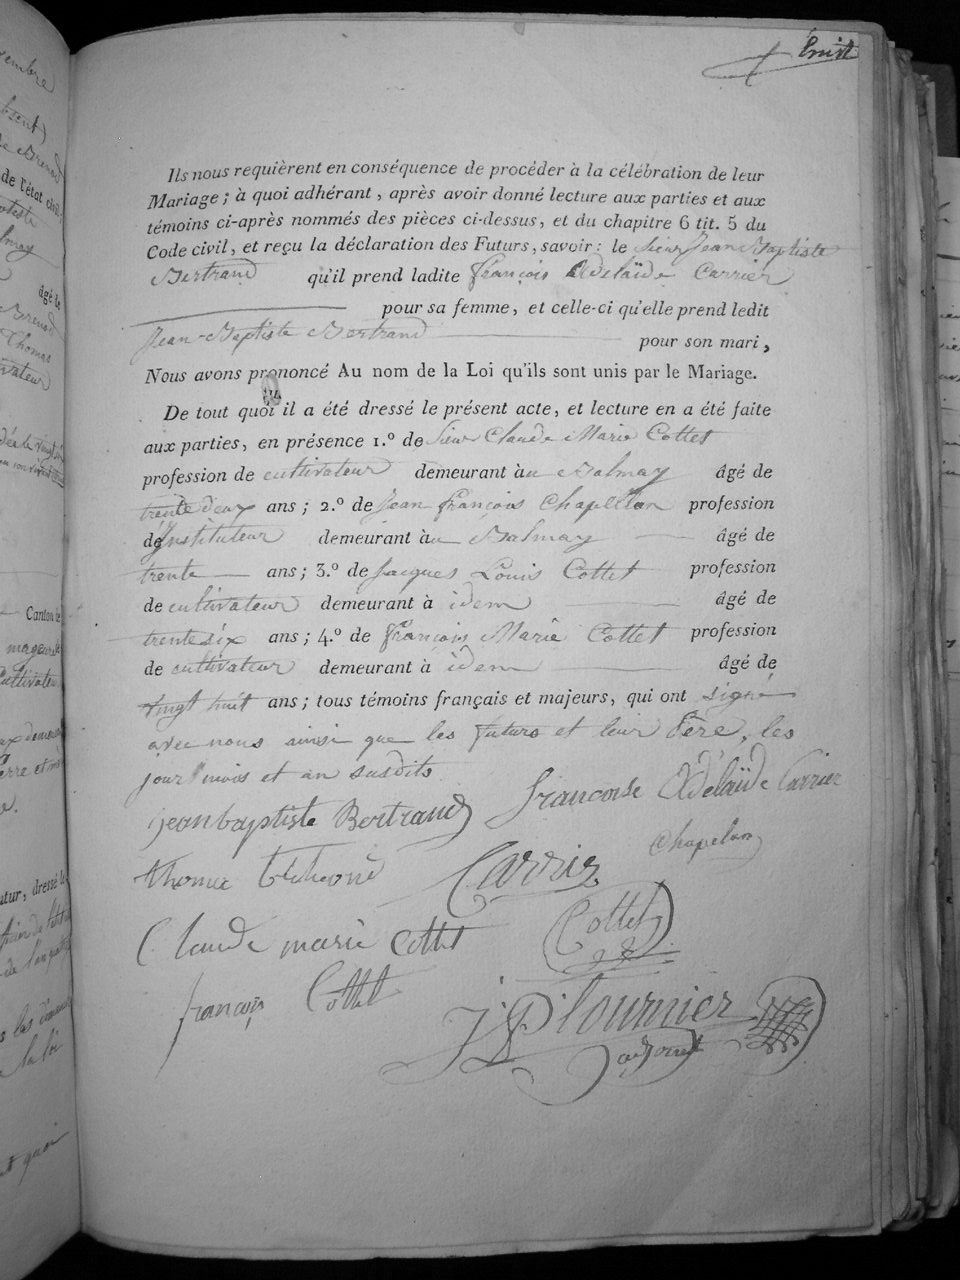 huit
Ils nous requièrent en conséquence de procéder à la célébration de leur
Mariage ; à quoi adhérant, après avoir donné lecture aux parties et aux
témoins ci-après nommés des pièces ci-dessus, et du chapitre 6 tit. 5 du
Code civil, et reçu la déclaration des Futurs, savoir : le Sieur Jean Baptiste
Bertrand qu'il prend ladite françois Adelaïde Carrier
pour sa femme, et celle-ci qu'elle prend ledit
Jean-Baptiste Bertrand pour son mari,
Nous avons prononcé Au nom de la Loi qu'ils sont unis par le Mariage.
De tout quoi il a été dressé le présent acte, et lecture en a été faite
aux parties, en présence 1.º de Sieur Claude Marie Cottet
profession de cultivateur demeurant à au Balmay âgé de
trente deux ans ; 2.º de Jean François Chapellon profession
de Instituteur demeurant à au Balmay âgé de
trente ans ; 3.º de Jacques Louis Cottet profession
de cultivateur demeurant à idem âgé de
trente six ans ; 4.º de François Marie Cottet profession
de cultivateur demeurant à idem âgé de
vingt huit ans ; tous témoins français et majeurs, qui ont signé
avec nous ainsi que les futurs et leur Père, les
jour mois et an susdits
jean baptiste Bertrand francoise Adelaïde Carrier
Chapelon
thomas Carrier
Claude marie Cottet Cottet
françois Cottet
tournier
adjoint